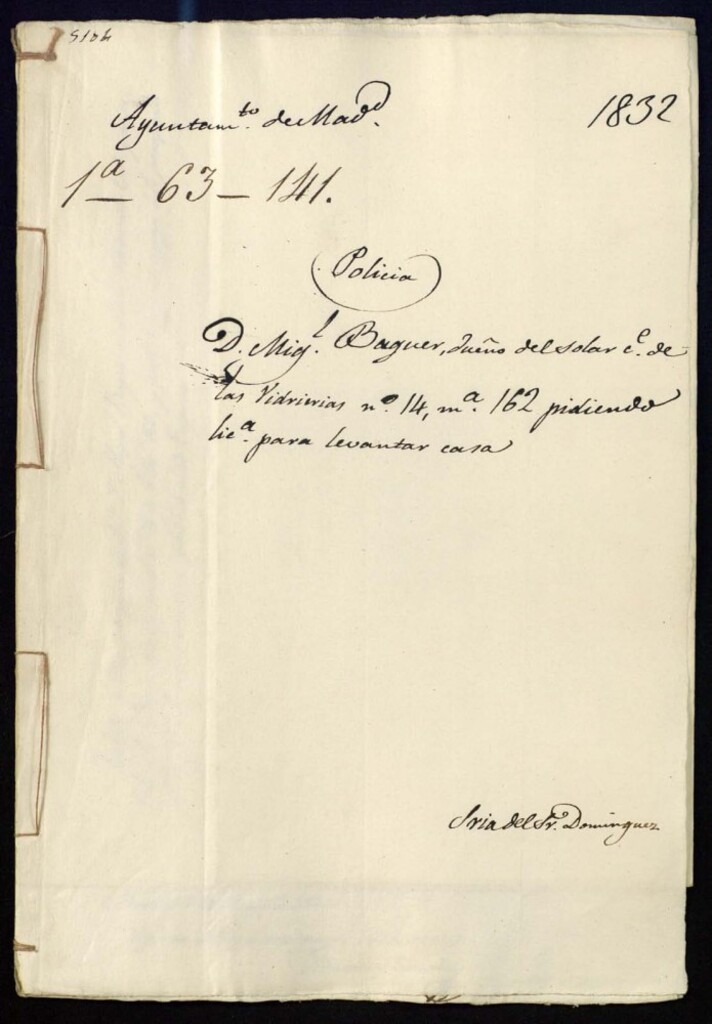 Ayuntam.to de Mad.d 1832
1a 63 - 141.
Policia
D. Mig.l Baguer, dueño del solar c.e de
las Vidrierias n.o 14, m.a 162 pidiendo
lic.a para levantar casa
Sria del Sr. Dominguez